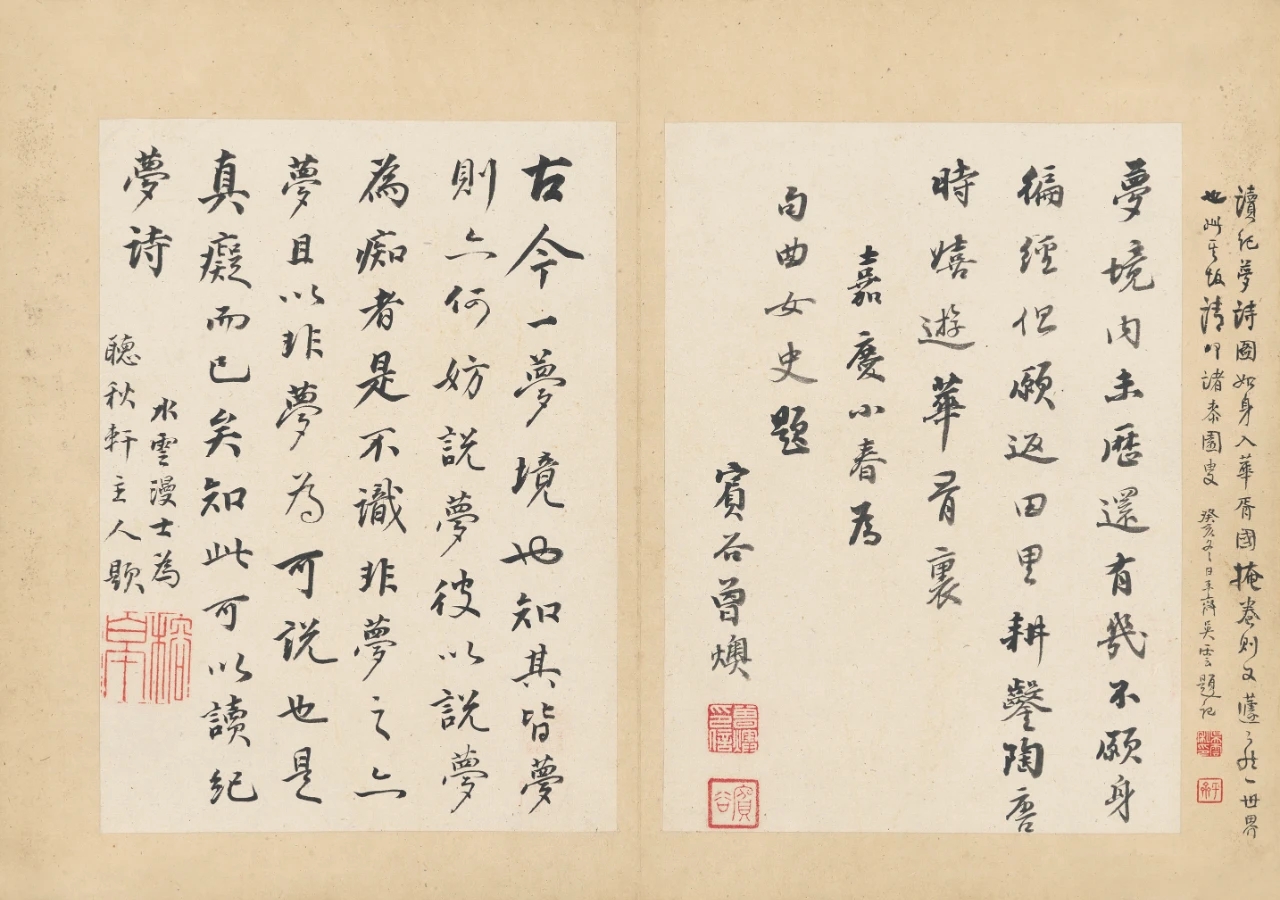 讀紀夢詩圖如身入華胥國掩卷則又蘧〻然一世界
也此
癸亥冬日平齋吳雲題記
夢境內未歷還有幾不願身
徧經但願返田里耕鑿陶唐
時嬉遊華胥裏
嘉慶小春為
句曲女史題
賓谷曾燠
曾燠
印信
賓谷
古今一夢境也知其皆夢
則亦何妨說夢彼以說夢
為痴者是不識非夢之亦
夢且以非夢為可說也是
真癡而已矣知此可以讀紀
夢詩
水雲漫士為
聽秋軒主人題